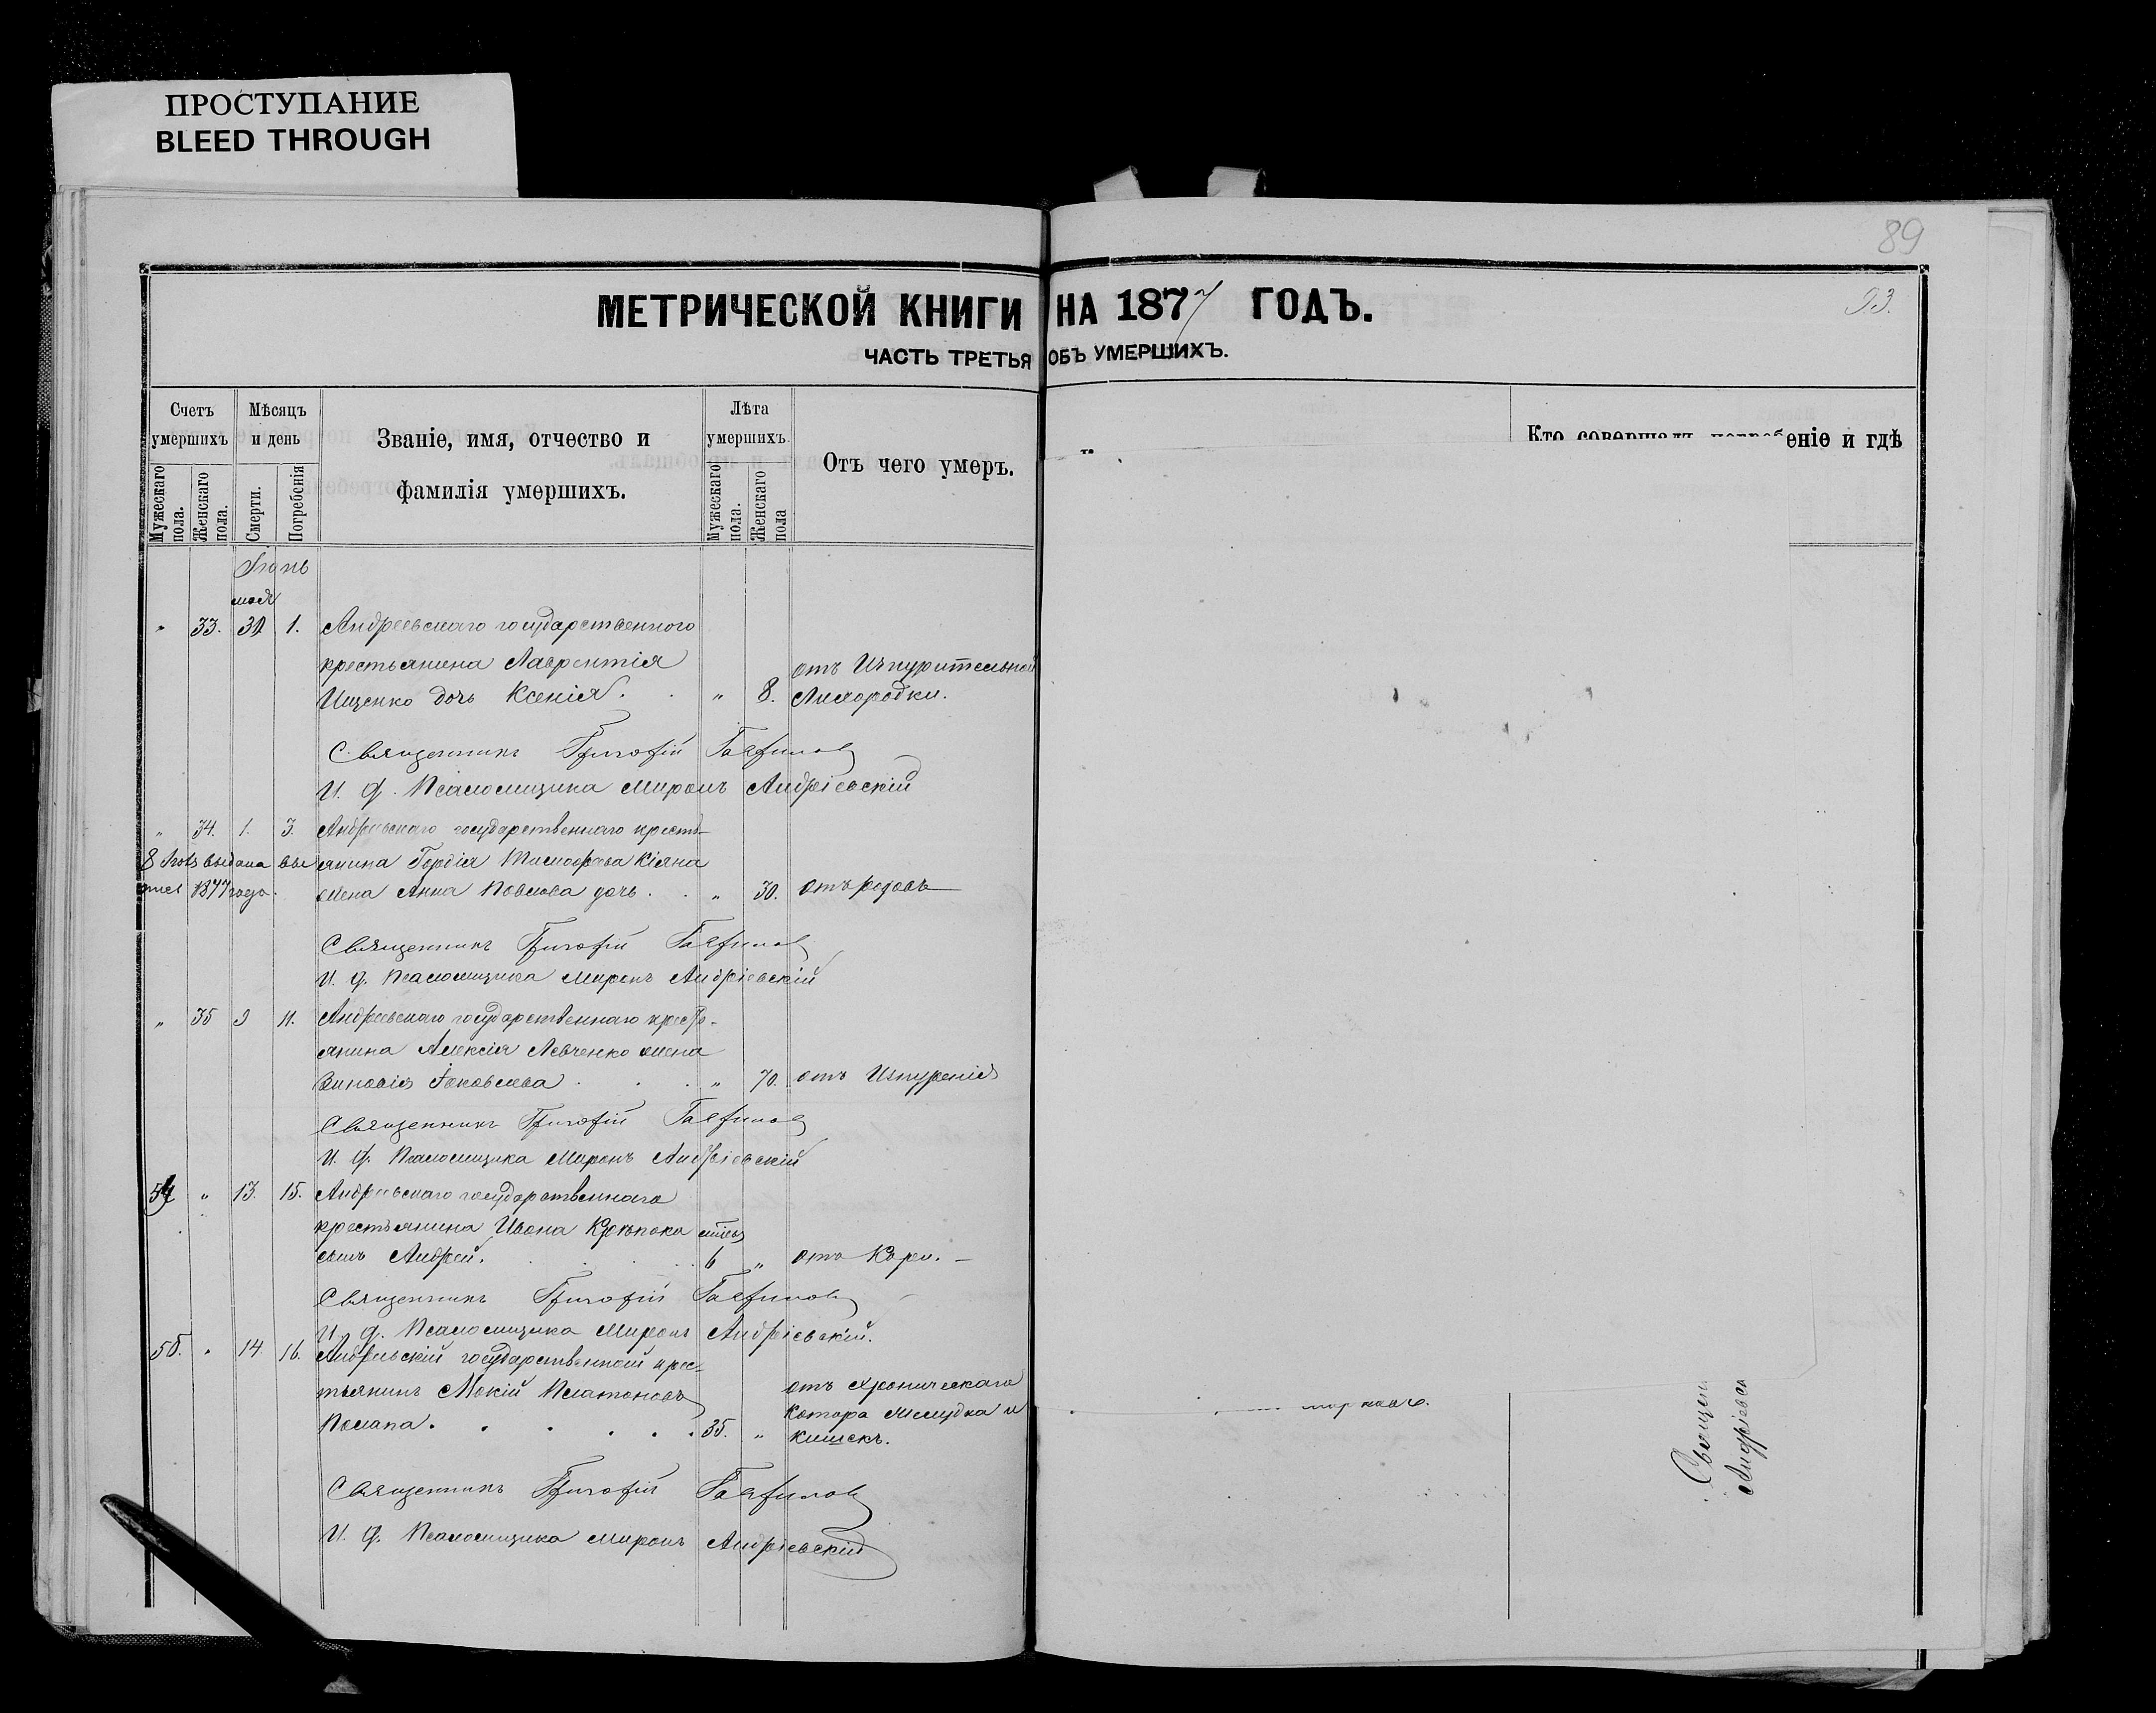 ПРОСТУПАНИЕ
BLEED THROUGH
89
93.
МЕТРИЧЕСКОЙ КНИГИ НА 1877 ГОДЪ.
ЧАСТЬ ТРЕТЬЯ ОБЪ УМЕРШИХЪ.
Счетъ умершихъ
Мужескаго пола.
Женскаго пола.
Мѣсяцъ и день
Смерти.
Погребенія
Званіе, имя, отчество и
фамилія умершихъ.
Лѣта умершихъ.
Мужескаго пола.
Женскаго пола
Отъ чего умеръ.
Кто совершалъ погребеніе и гдѣ
Іюнь
мая
" 33. 31 1. Андреевскаго государственного
крестьянина Лаврентія
Ищенко дочь Ксенія. " 8. отъ Изнурительной
Лихорадки.
Священникъ Григорій
И. д. Псаломщика Миронъ Андріевскій
" 34. 1. 3. Андреевскаго государственнаго кресть-
янина Гордія Кіяна
жена Анна Павлова дочь . . " 30. отъ родовъ
8 выдана
1877 года.
Священникъ Григорій
И. д. Псаломщика Миронъ Андріевскій
" 35 9 11. Андреевскаго государственнаго кресть-
янина Алексія Левченко жена
Зиновія Іаковлева . . . " 70. отъ Изнуренія
Священникъ Григорій
И. д. Псаломщика Миронъ Андріевскій
54 " 13. 15. Андреевскаго государственнаго
крестьянина Ивана
сынъ Андрей. 6 " отъ Кори. —
Священникъ Григорій
И. д. Псаломщика Миронъ Андріевскій.
55. " 14 16. Андреевскій государственный крес-
тьянинъ Мокій Платоновъ
35. " отъ хроническаго
Катара желудка и
кишекъ.
Священникъ Григорій
И. д. Псаломщика Миронъ Андріевскій
Священ
Андріевск